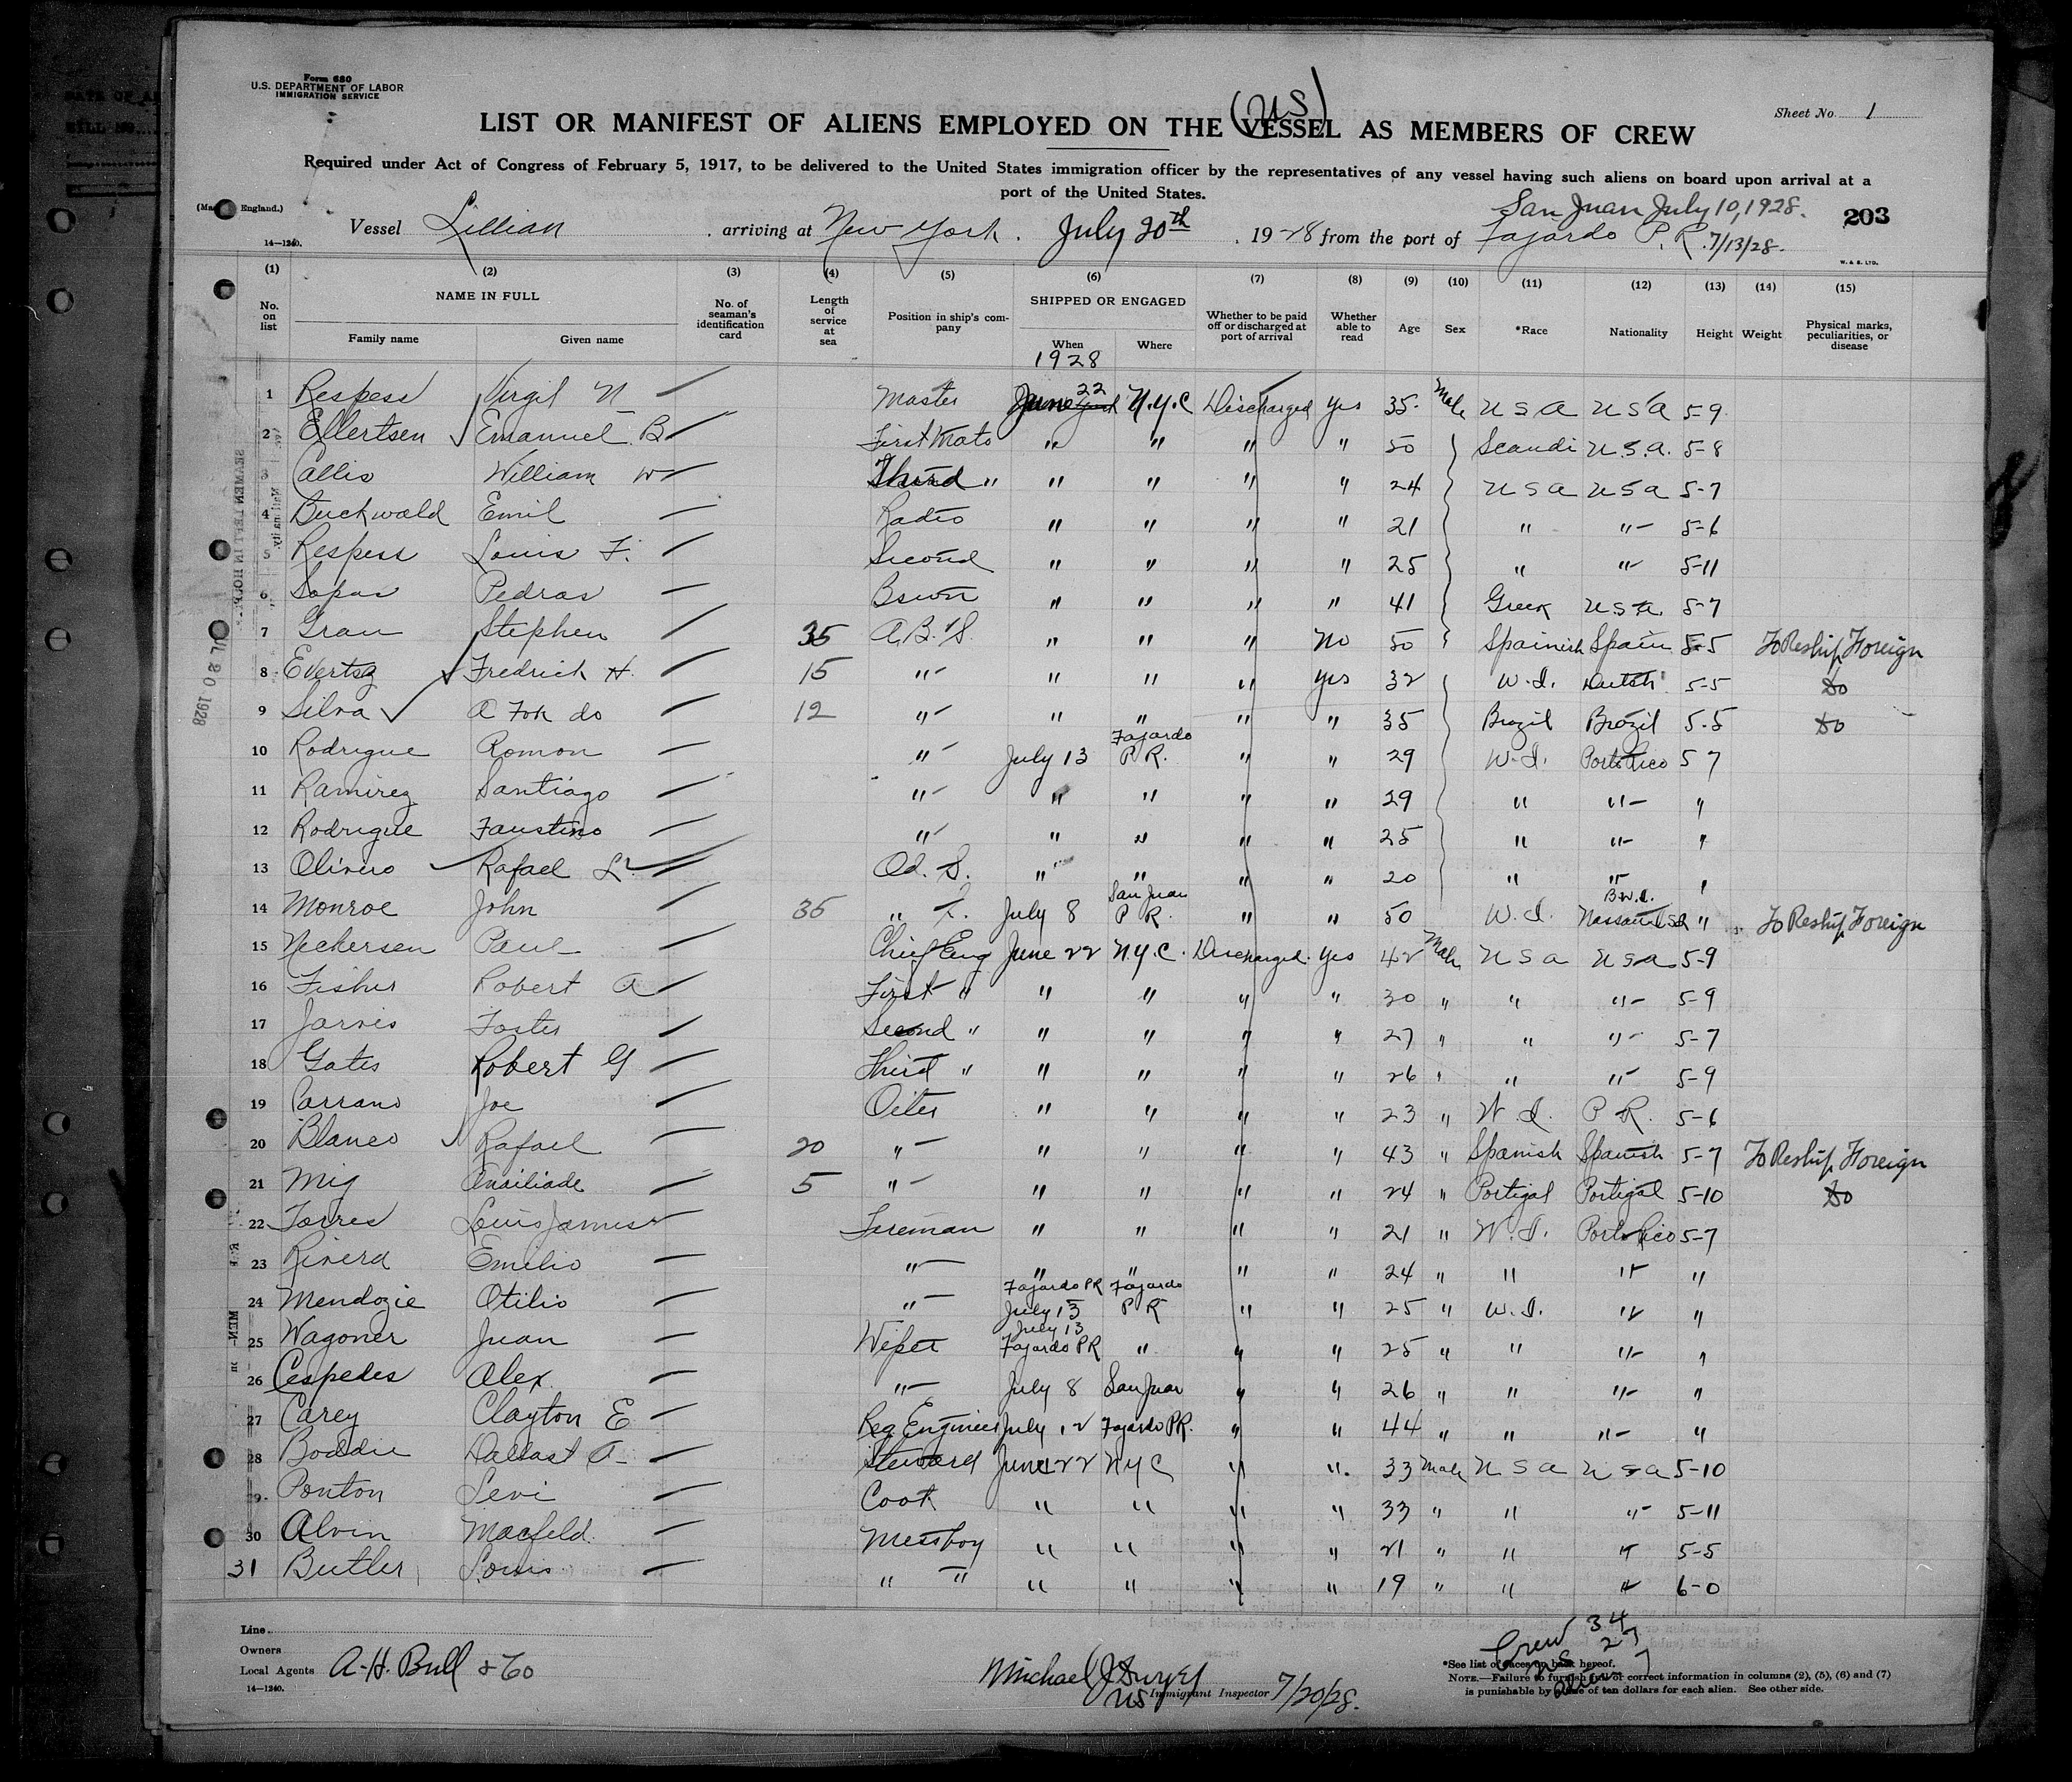 Form 680
U.S. DEPARTMENT OF LABOR
IMMIGRATION SERVICE
(US)
Sheet No. 1
LIST OR MANIFEST OF ALIENS EMPLOYED ON THE VESSEL AS MEMBERS OF CREW
Required under Act of Congress of February 5, 1917, to be delivered to the United States immigration officer by the representatives of any vessel having such aliens on board upon arrival at a
port of the United States.
San Juan July 10, 1928.
203
Vessel Lillian arriving at New York. July 20th, 1928 from the port of Fajardo P.R. 7/13/28.
14—1240.
W. & S. LTD.
(1) (2) (3) (4) (5) (6) (7) (8) (9) (10) (11) (12) (13) (14) (15)
No. on list NAME IN FULL Family name Given name No. of seaman's identification card Length of service at sea Position in ship's company SHIPPED OR ENGAGED When Where Whether to be paid off or discharged at port of arrival Whether able to read Age Sex *Race Nationality Height Weight Physical marks, peculiarities, or disease
1928
1 Respess Virgil N Master June 22 N.Y.C Discharged Yes 35 Male U S A U S A 5-9
2 Ellertsen Emanuel B First Mate " " " " 50 Scandi U.S.A. 5-8
3 Callis William W Third " " " " " 24 U S A U S A 5-7
4 Buckwald Emil Radio " " " " 21 " " 5-6
5 Respess Louis F. Second " " " " 25 " " 5-11
6 Sapas Pedras Bswn " " " " 41 Greek U.S.A. 5-7
7 Grau Stephen 35 A.B.'S. " " " No 50 Spainish Spain 5-5 To Reship Foreign
8 Evertsz Fredrick H. 15 " " " " Yes 32 W.I. Dutch 5-5 do
9 Silva A do 12 " " " " " 35 Brazil Brazil 5.5 do
10 Rodrigue Romon " July 13 Fajardo P R. " " 29 W.I. Porto Rico 5 7
11 Ramirez Santiago " " " " " 29 " " "
12 Rodrigue Faustino " " " " " 25 " " "
13 Olivero Rafael L. Od. S. " " " " 20 " " "
14 Monroe John 35 " July 8 San Juan P R. " " 50 W.I. B.W.I. Nassau " To Reship Foreign
15 Neckersen Paul Chief Eng June 22 N.Y.C. Discharged. Yes 42 Male U S A U S A 5-9
16 Fisher Robert A First " " " " " 30 " " " 5-9
17 Jarvis Foster Second " " " " " 27 " " " 5-7
18 Gates Robert G Third " " " " " 26 " " " 5-9
19 Parrano Joe Oiler " " " " 23 " W I. P R. 5-6
20 Blanco Rafael 20 " " " " " 43 " Spanish Spanish 5-7 To Reship Foreign
21 Mig 5 " " " " " 24 " Portigal Portigal 5-10 do
22 Torres Louis James Fireman " " " " 21 " W.I. Porto Rico 5-7
23 Rivera Emilio " " " " " 24 " " " "
24 Mendozie Otilio " Fajardo PR July 13 Fajardo P R " " 25 " W.I. " "
25 Wagoner Juan Wiper July 13 Fajardo PR " " " 25 " " " "
26 Cespedes Alex " July 8 San Juan " " 26 " " " "
27 Carey Clayton E Engineer July 12 Fajardo PR. " " 44 " " " "
28 Boddie Dallast A Steward June 22 N Y C " " 33 Male U S A U S A 5-10
29 Ponton Levi Cook " " " " 33 " " " 5-11
30 Alvin Macfeld. Messboy " " " " 21 " " " 5-5
31 Butler Louis " " " " " " 19 " " " 6-0
Line
Owners
Local Agents A. H. Bull & Co
14—1240.
Michael J
US Immigrant Inspector 7/20/28.
Crew 34
US 27
Alien 7
*See list of races on back hereof.
NOTE.—Failure to furnish full or correct information in columns (2), (5), (6) and (7)
is punishable by fine of ten dollars for each alien. See other side.
JUL 20 1928